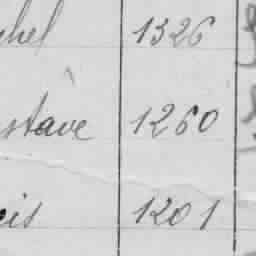 chel 1326
stave 1260
cis 1201